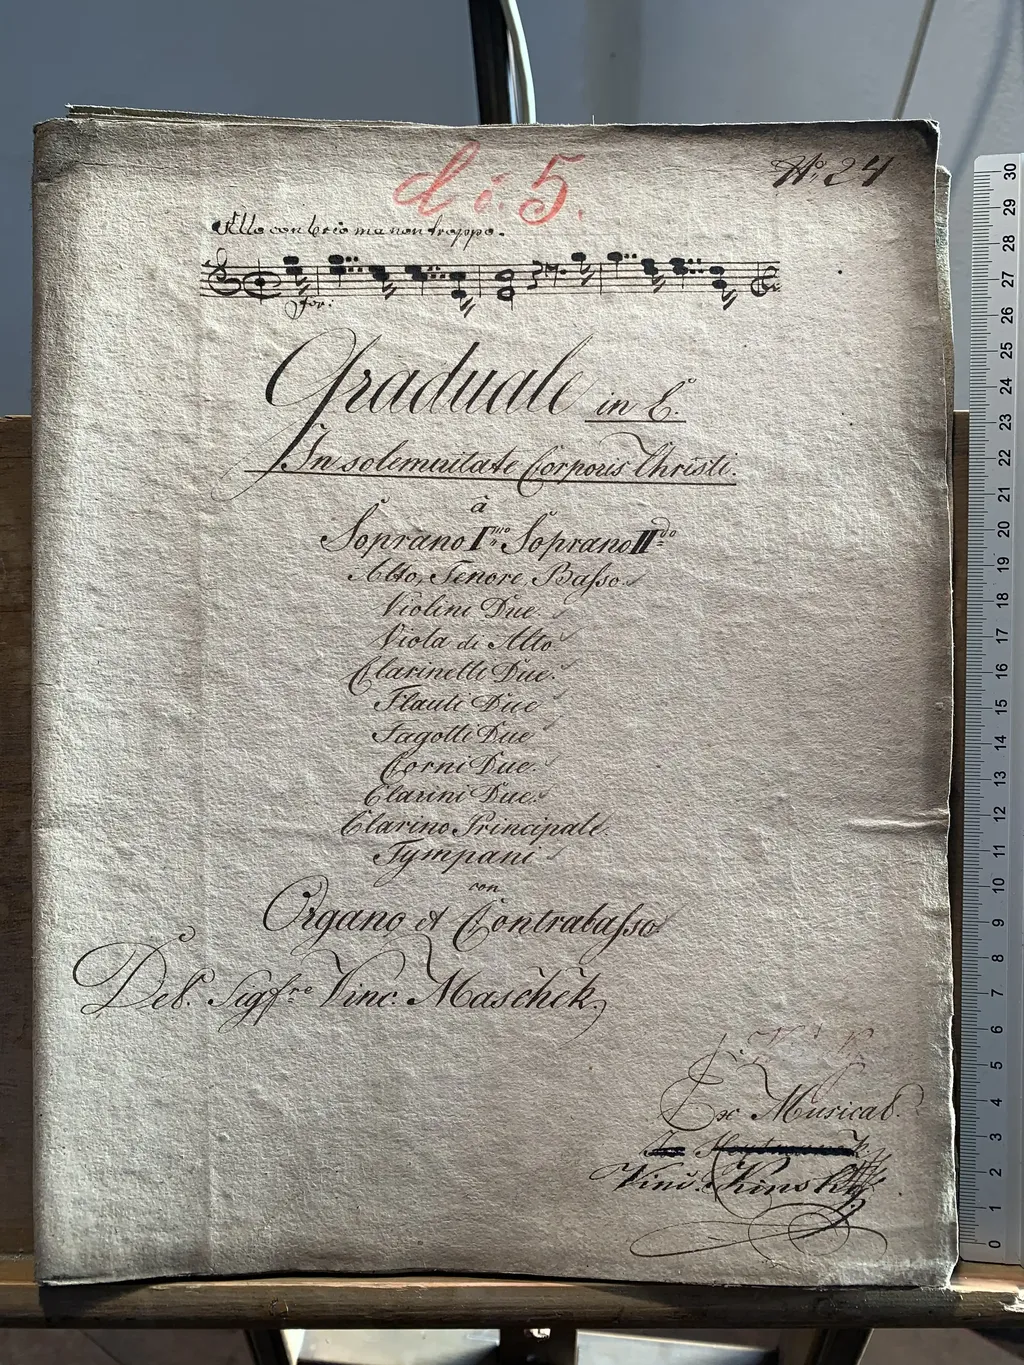 d. i. 5.
No. 24
Allo con brio ma non troppo.
for:
Graduale in C.
In solemnitate Corporis Christi.
à
Soprano Imo Soprano IIdo
Alto, Tenore, Basso
Violini Due.
Viola di Alto
Clarinetti Due.
Flauti Due
Fagotti Due
Corni Due.
Clarini Due.
Clarino Principale.
Tympani
con
Organo et Contrabasso
Del Sigre Vinc. Maschek.
Ex Musical.
Jos
Vinc. Kinsky
30
29
28
27
26
25
24
23
22
21
20
19
18
17
16
15
14
13
12
11
10
9
8
7
6
5
4
3
2
1
0